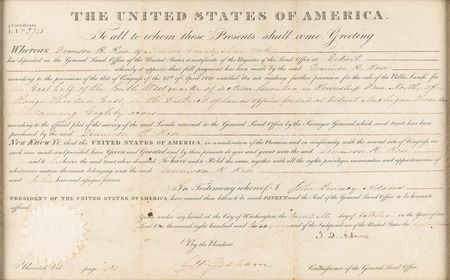 THE UNITED STATES OF AMERICA.
Certificate
No 2713
To all to whom these Presents shall come, Greeting
Whereas Dennison R. Rose of County
has deposited in the General Land Office of the United States, a certificate of the Register of the Land Office at Detroit
whereby it appears that full payment has been made by the said Dennison R. Rose
according to the provisions of the Act of Congress of the 24th of April 1820 entitled "An act making further provision for the sale of the Public Lands" for
the East half of the South West quarter of section in Township Five North, of
Range East, in the District of lands offered for sale at Detroit Michigan
Containing Eighty acres
according to the official plat of the survey of the said Lands, returned to the General Land Office by the Surveyor General, which said tract has been
purchased by the said Dennison R. Rose
Now Know Ye, that the UNITED STATES OF AMERICA, in consideration of the Premises, and in conformity with the several acts of Congress, in
such case made and provided, have Given and Granted, and by these presents do give and grant, unto the said Dennison R. Rose
and to his heirs the said tract above described: To have and to Hold the same, together with all the rights, privileges, immunities, and appurtenances of
whatsoever nature thereunto belonging, unto the said Dennison R. Rose
and to his heirs and assigns forever.
In Testimony whereof I, John Quincy Adams
PRESIDENT OF THE UNITED STATES OF AMERICA, have caused these letters to be made PATENT, and the Seal of the General Land Office to be hereunto
affixed.
Given under my hand at the City of Washington, the twentieth day of October in the Year of our
Lord One thousand eight hundred and and of the Independence of the United States the
By the President, J. Q. Adams
Commissioner of the General Land Office.
Recorded Vol page